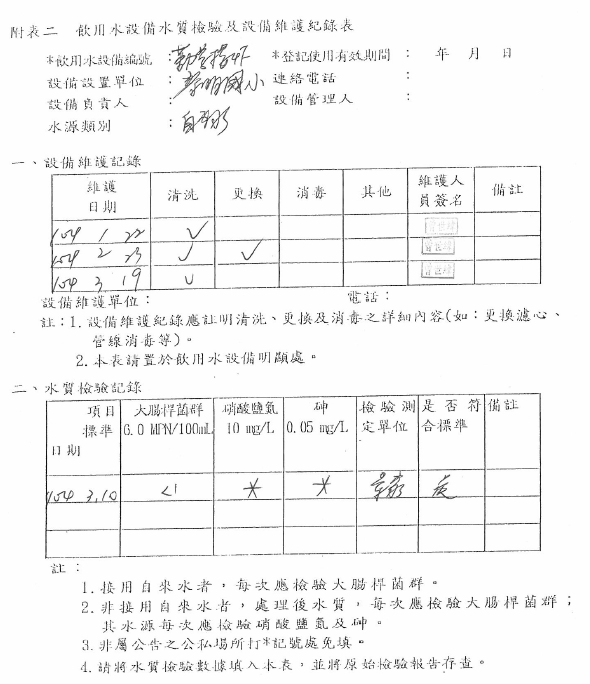 附表二 飲用水設備水質檢驗及設備維護紀錄表
*飲用水設備編號： *登記使用有效期間： 年 月 日
設備設置單位： 國小 連絡電話：
設備負責人： 設備管理人：
水源類別：自來水
一、設備維護記錄
維護日期 清洗 更換 消毒 其他 維護人員簽名 備註
104 1 22 ✓
104 2 23 ✓ ✓
104 3 19 ✓
設備維護單位： 電話：
註：1.設備維護紀錄應註明清洗、更換及消毒之詳細內容(如：更換濾心、
管線消毒等)。
2.本表請置於飲用水設備明顯處。
二、水質檢驗記錄
項目 大腸桿菌群 硝酸鹽氮 砷 檢驗測 是否符 備註
標準 6.0 MPN/100mL 10 mg/L 0.05 mg/L 定單位 合標準
日期
104 3.10 <1 * *
註：
1.接用自來水者，每次應檢驗大腸桿菌群。
2.非接用自來水者，處理後水質，每次應檢驗大腸桿菌群；
其水源每次應檢驗硝酸鹽氮及砷。
3.非屬公告之公私場所打*記號處免填。
4.請將水質檢驗數據填入本表，並將原始檢驗報告存查。